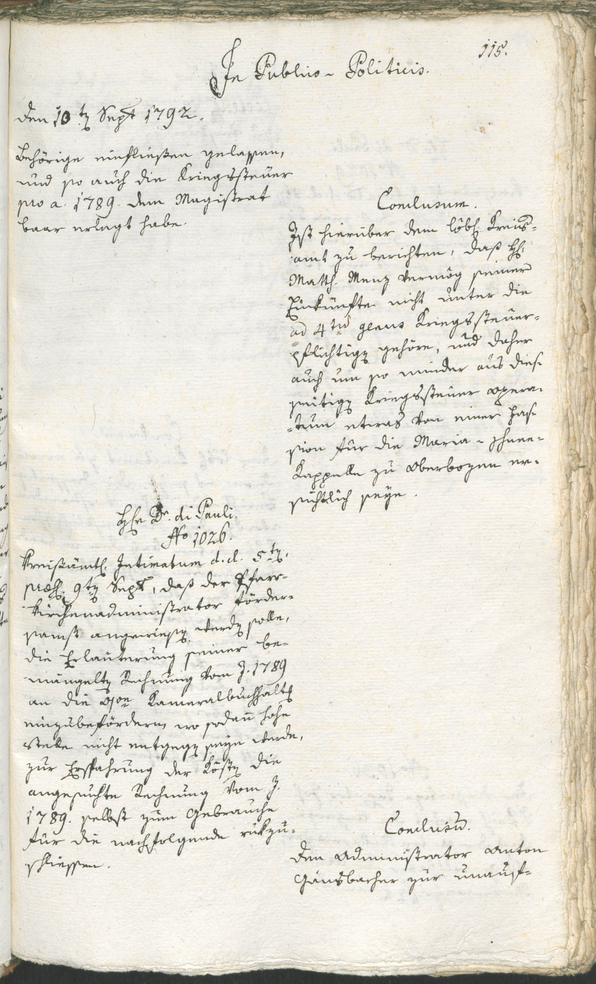 115.
In Publico-Politicis.
den 10ten Sept 1792.
behörige einfließen gelassen,
und so auch die Kriegssteuer
pro a. 1789. dem Magistrat
baar erlegt habe.
Conclusum.
Ist hierüber dem löbl. Kreis-
amt zu berichten, daß H.
Math. Menz vermög seiner
Einkünfte nicht unter die
ad 4tum Kriegssteuer-
pflichtige gehöre, und daher
auch um so minder aus dies-
seitigen Kriegssteuer opera-
tum etwas von einer Fas-
sion für die Maria-Schnee-
Kappelle zu Oberbozen er-
sichtlich seye.
H. Dr. di Pauli
No 1026.
Kreisämtl. Intimatum d.d. 5ten,
praes. 9ten Sept, daß der Pfarr-
kirchenadministrator förder-
samst angewiesen werden solle,
die Erläuterung seiner be-
mängelten Rechnung vom J. 1789
an die Kameralbuchhaltg
einzubefördern, wo sodann hohe
Stelle nicht entgegen seyn werde,
zur Ersparung der Kösten die
angesuchte Rechnung vom J.
1789. selbst zum Gebrauche
für die nachfolgende rükzu-
schliessen.
Conclusum.
Den Administrator Anton
Gänsbacher zur unauf-